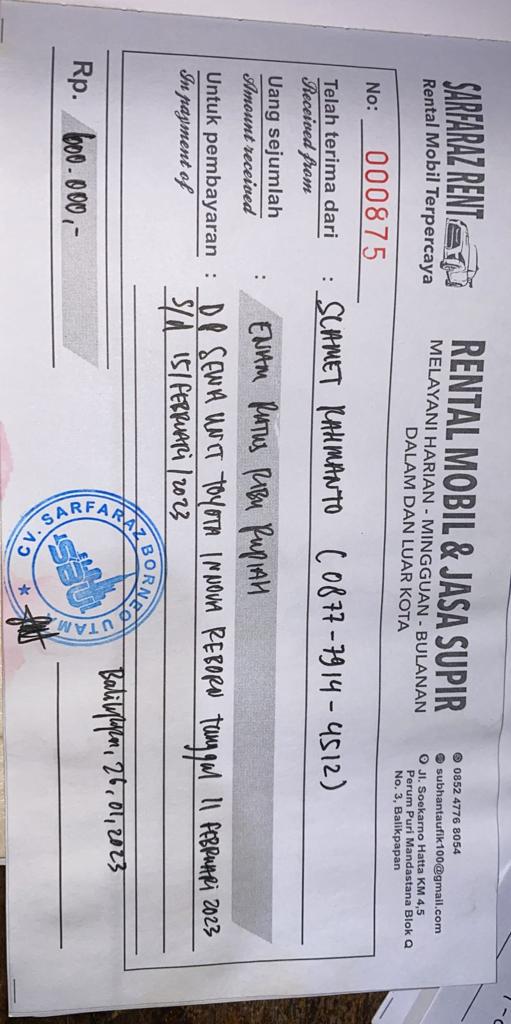 SARFARAZ RENT
Rental Mobil Terpercaya
RENTAL MOBIL & JASA SUPIR
MELAYANI HARIAN - MINGGUAN - BULANAN
DALAM DAN LUAR KOTA
0852 4776 8054
subhantaufik100@gmail.com
Jl. Soekarno Hatta KM 4,5
Perum Puri Mandastana Blok Q
No. 3, Balikpapan
No: 000875
Telah terima dari : SLAMET RAHMANTO (0877-7914-4512)
Received from
Uang sejumlah : ENAM RATUS RIBU RUPIAH
Amount received
Untuk pembayaran : DP SEWA UNIT TOYOTA INNOVA REBORN tanggal 11 FEBRUARI 2023
In payment of
S/d 15/FEBRUARI/2023
Balikpapan, 26, 01, 2023
Rp. 600.000,-
CV. SARFARAZ BORNEO UTAMA
SBU